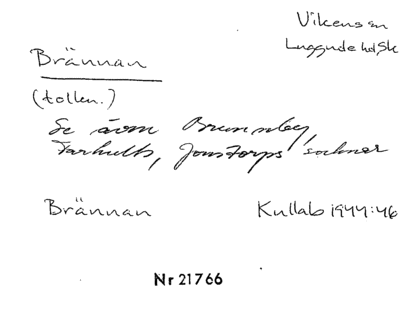 Vikens sn
Luggude hd, Sk
Brännan
(tolkn.)
Se även Brunnby,
Farhults, Jonstorps socknar
Brännan Kullab 1944:46
Nr 21766